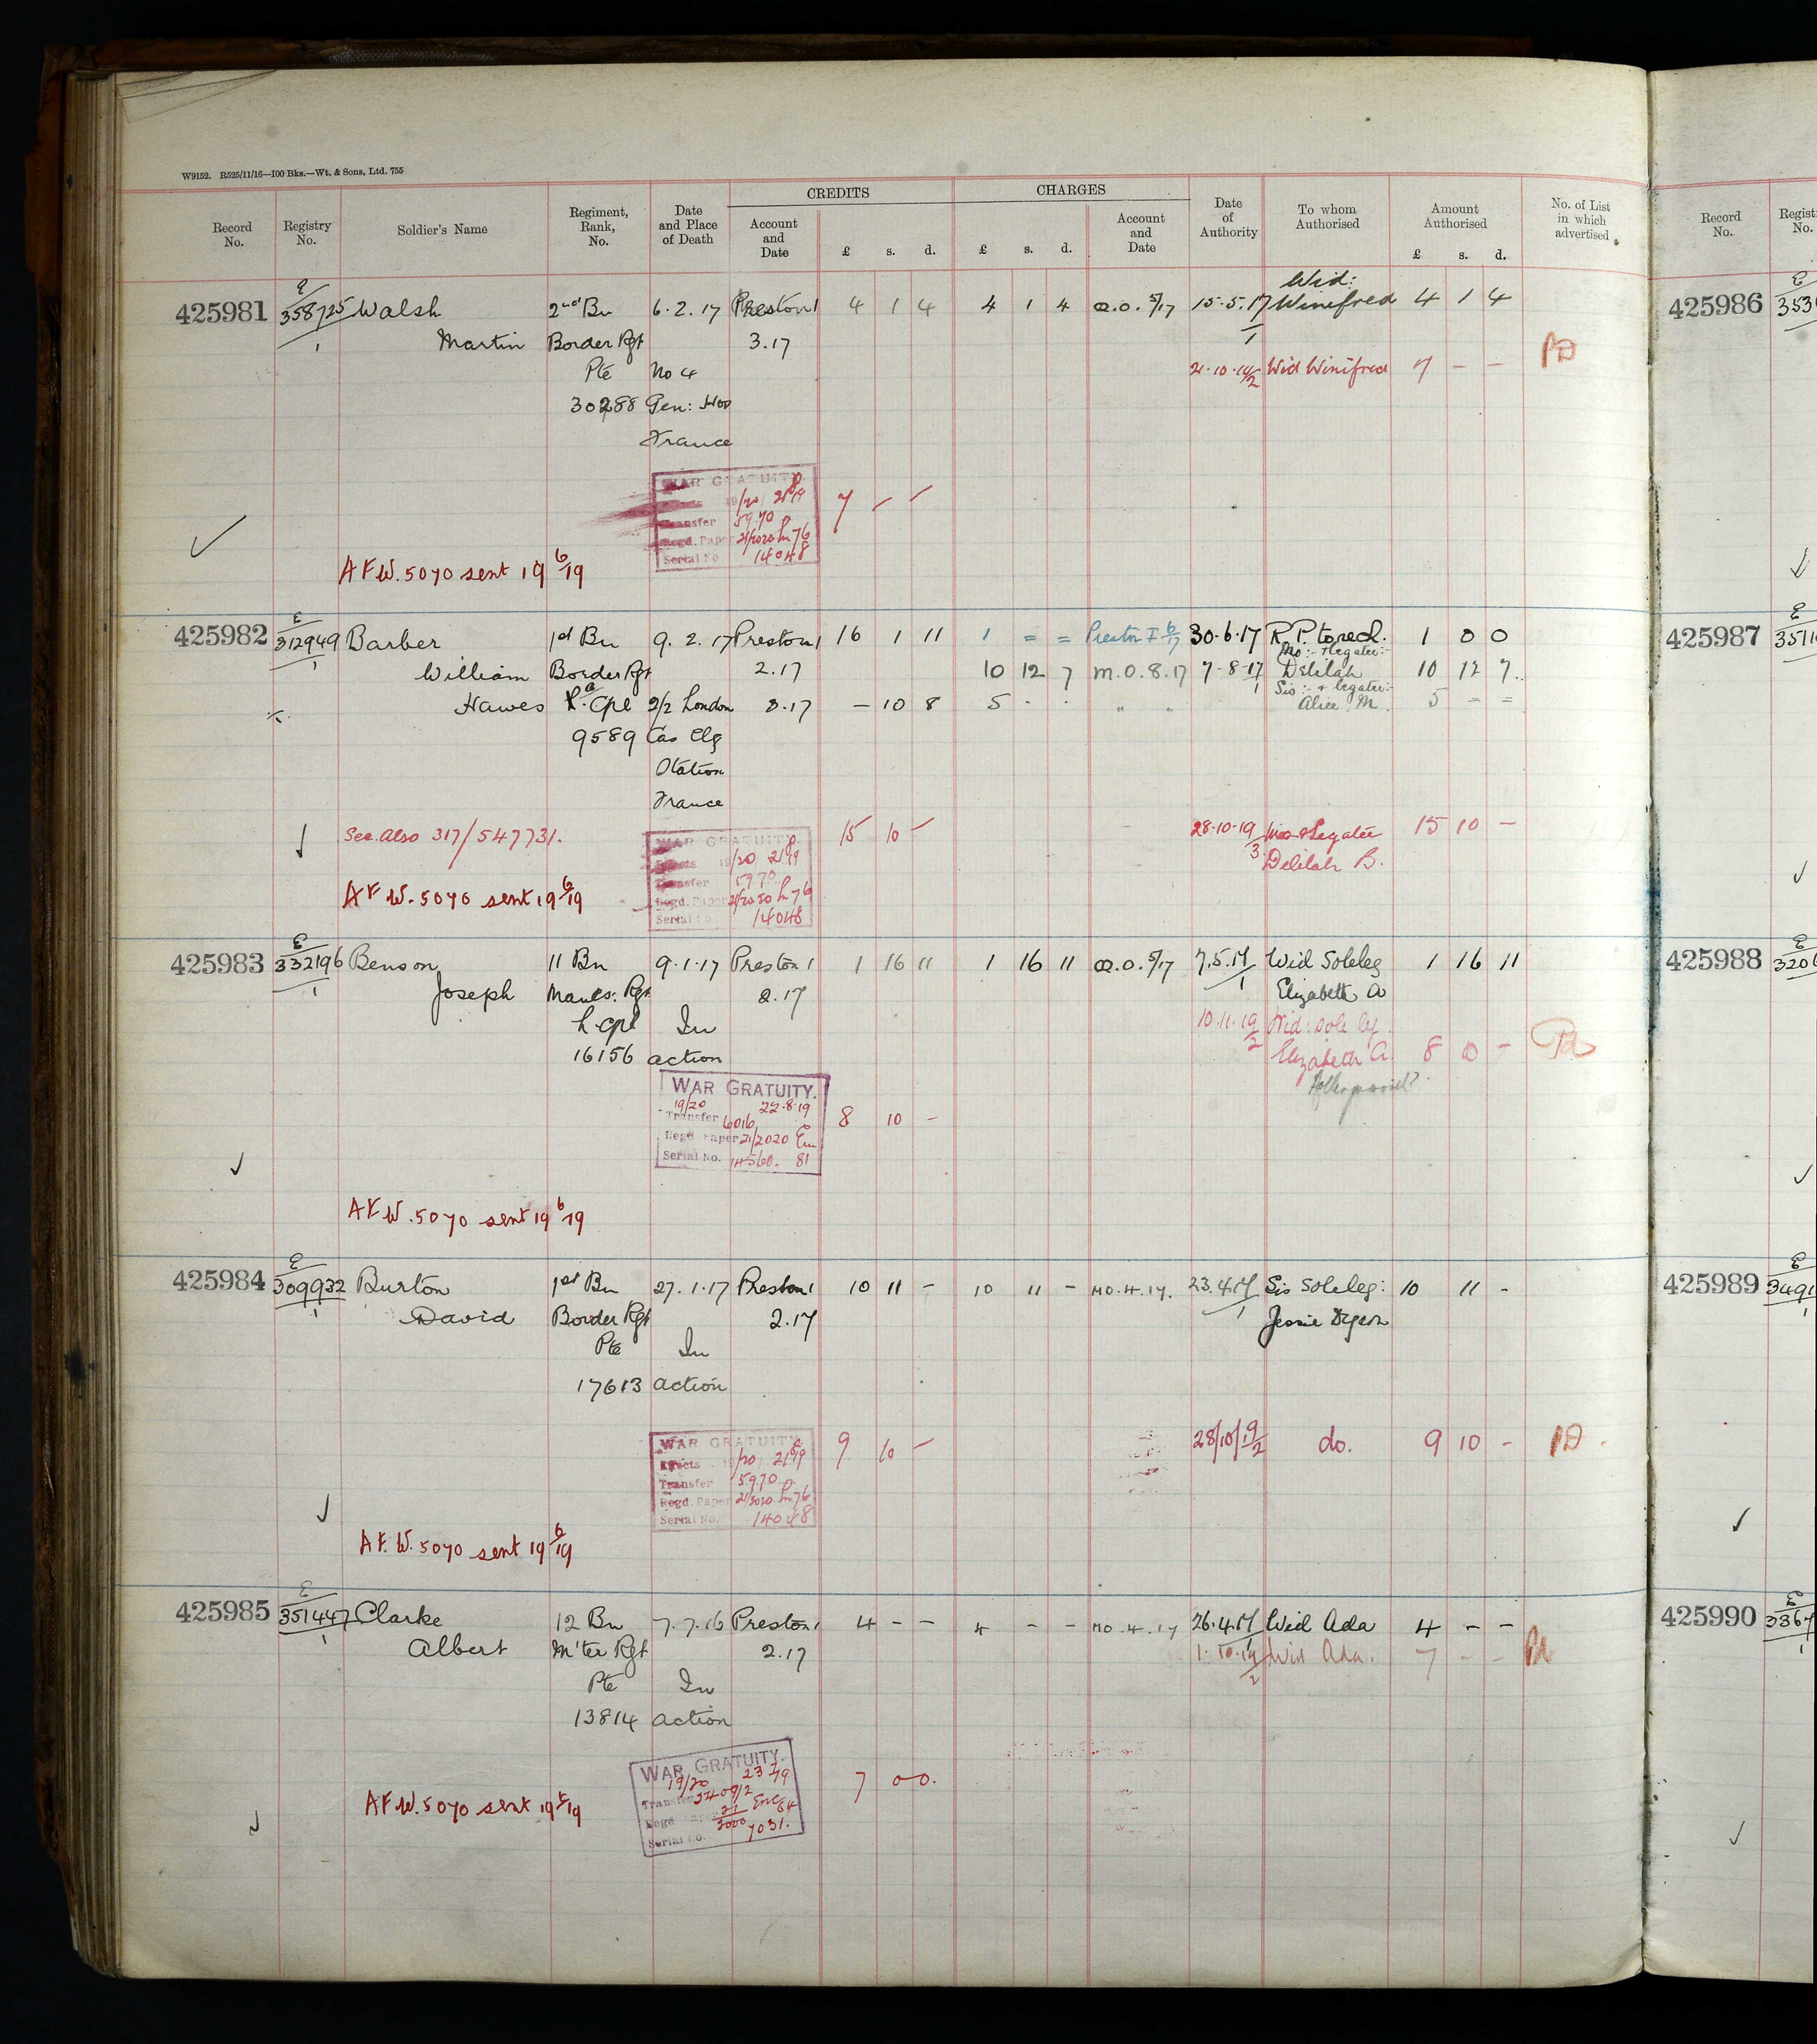 W9152. R525/11/16—100 Bks.—Wt. & Sons, Ltd. 755
CREDITS CHARGES
Record No. Registry No. Soldier's Name Regiment, Rank, No. Date and Place of Death Account and Date £ s. d. £ s. d. Account and Date Date of Authority To whom Authorised Amount Authorised £ s. d. No. of List in which advertised. Record No.
Wid:
425981 E 358725/1 Walsh 2nd Bn 6.2.17 Preston 1 4 1 4 4 1 4 O.O. 5/17 15.5.17/1 Winifred 4 1 4
Martin Border Rgt 3.17
Pte No 4 Wid Winifred 7 - - PD
30288 Gen: Hos
France
WAR GRATUITY.
Transfer 5970 7 - -
Regd. Paper 21/2020 76
Serial No 14048
A F W. 5070 sent 19 6/19
425982 E 312949/1 Barber 1st Bn 9.2.17 Preston 1 16 1 11 1 = = Preston I 6/17 30.6.17 R.P. to recd. 1 0 0
Mo: + legatee:-
William Border Rgt 2.17 10 12 7 M.O. 8.17 7-8-17/1 Delilah 10 12 7
Sis: + legatee:-
Hawes L. Cpl 2/2 London 3.17 — 10 8 5 . . " " Alice M. 5 = =
9589 Cas Clg
Station
France
See also 317/547731.
WAR GRATUITY. 15 10 - 28-10-19/3 Mo & Legatee 15 10 -
Effects Delilah B.
Transfer 5970
Regd. Paper 21/2020 76
Serial No 14048
A F W. 5070 sent 19 6/19
425983 E 332196/1 Benson 11 Bn 9.1.17 Preston 1 1 16 11 1 16 11 O.O. 5/17 7.5.17/1 Wid Soleleg 1 16 11
Joseph Manc: Rgt 2.17 Elizabeth A
L. Cpl In 10.11.19/2 Wid: sole leg.
16156 action Elizabeth A 8 10 - Pd
WAR GRATUITY.
19/20 22.8.19
Transfer 6016 8 10 -
Regd Paper 21/2020
Serial No. 14560. 81
A F W. 5070 sent 19 6/19
425984 E 309932/1 Burton 1st Bn 27.1.17 Preston 1 10 11 - 10 11 - MO.4.17. 23.4.17/1 Sis Soleleg: 10 11 -
David Border Rgt 2.17 Jessie Dyson
Pte In
17613 action
WAR GRATUITY 9 10 - 28/10/19/2 do. 9 10 - PD.
Effects
Transfer 5970
Regd. Paper 21/2020 76
Serial No. 14048
A F. W. 5070 sent 19 6/19
425985 E 351447/1 Clarke 12 Bn 7.7.16 Preston 1 4 - - 4 - - MO.4.17 26.4.17/1 Wid Ada 4 - -
Albert M'ter Rgt 2.17 Wid Ada. 7 - - Pd
Pte In
13814 action
WAR GRATUITY.
19/20
Transfer 7 0 0.
Regd.
Serial No. 7031.
A F W. 5070 sent 19
425986
425987
425988
425989
425990